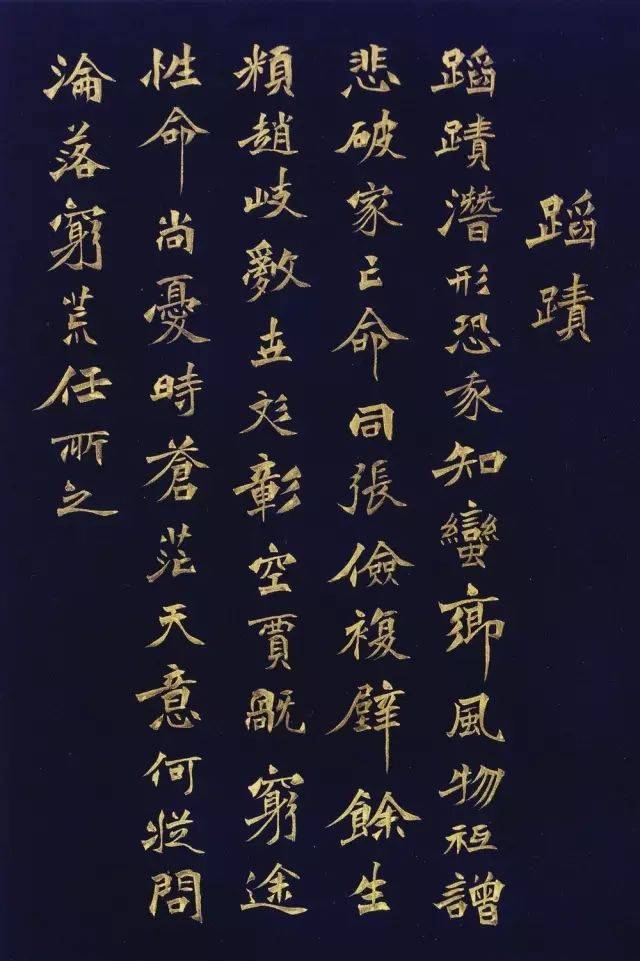 蹈蹟
蹈蹟潛形恐知蠻鄉風物祗譄
悲破家亡命同張儉複壁餘生
頪趙岐世彰空賈旤窮途
性命尚憂時蒼茫天意何從問
淪落窮荒任所之